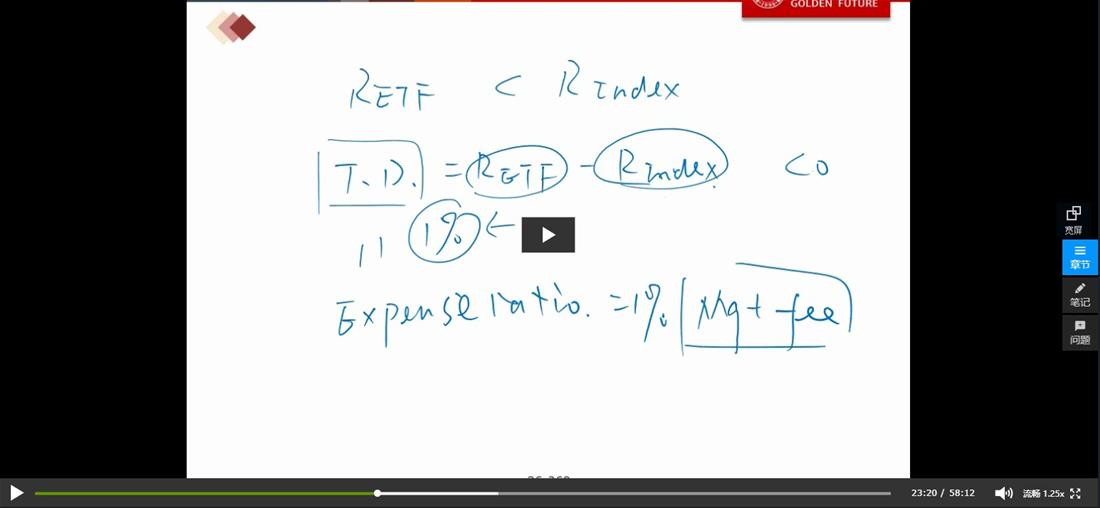 GOLDEN FUTURE
RETF < R Index
T.D. = RETF - R Index <0
11 1% ←
Expense ratio. = 1% Mgt fee
宽屏
章节
笔记
问题
23:20 / 58:12 流畅 1.25x